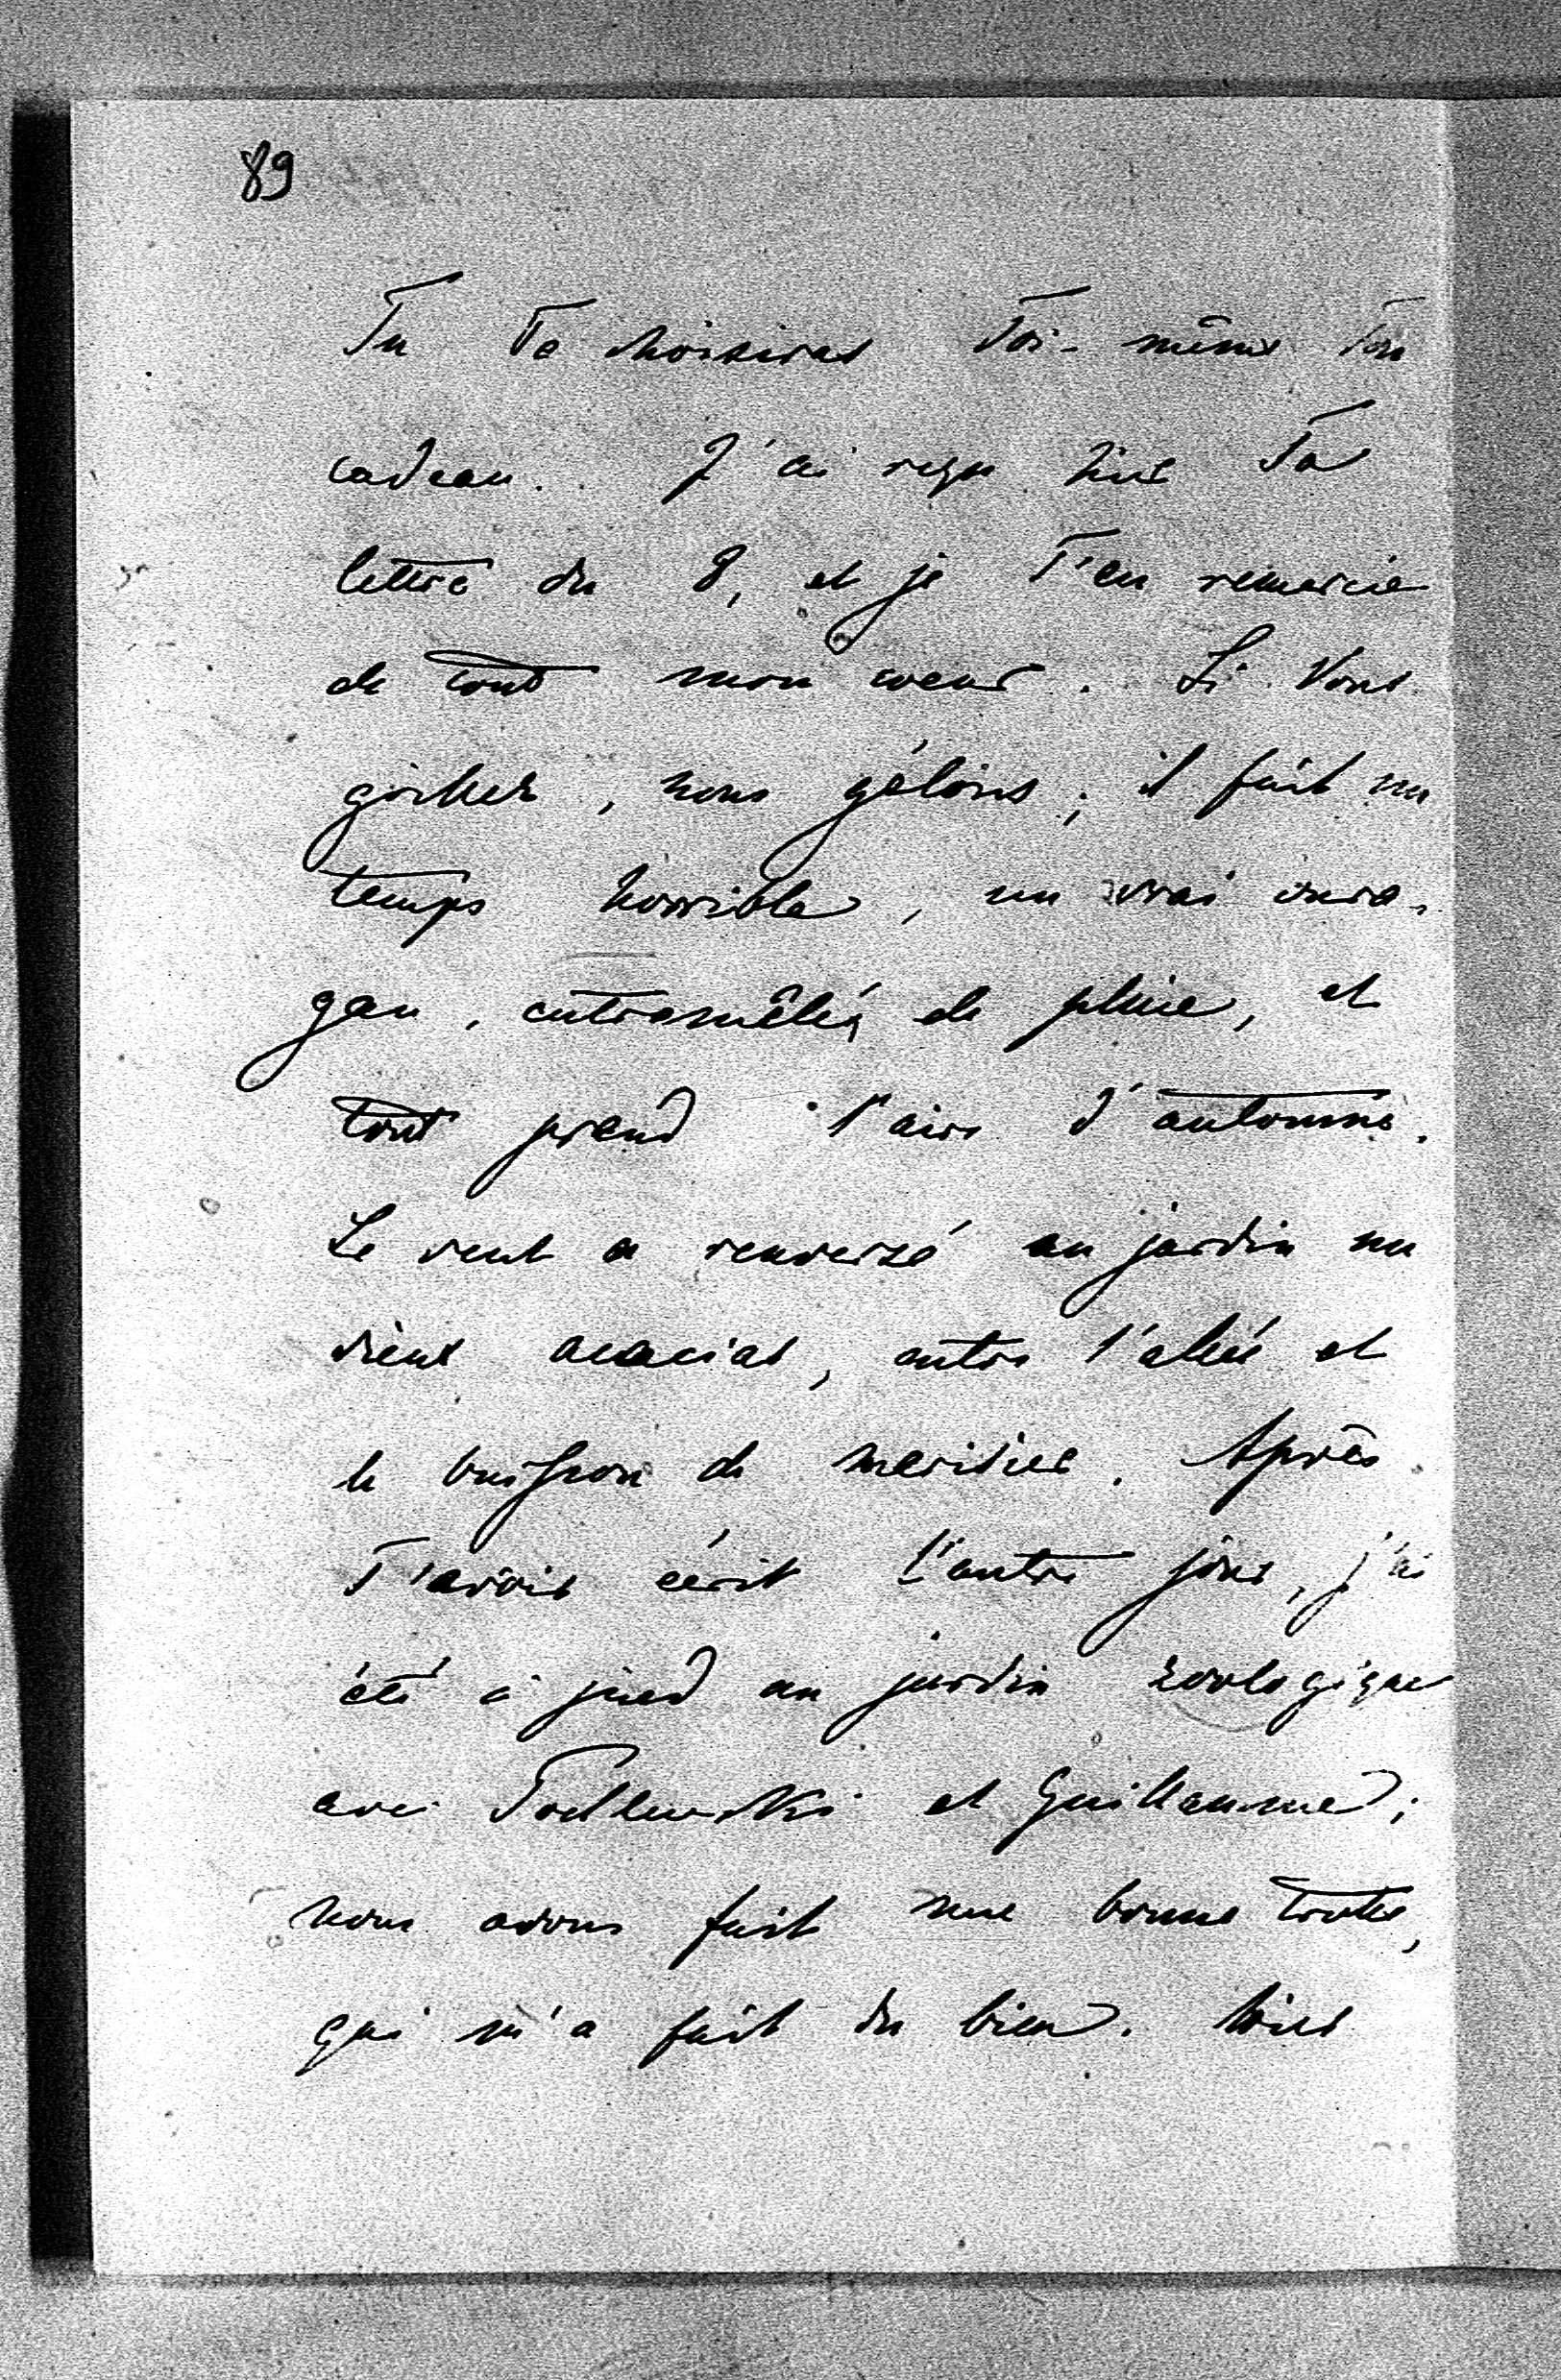 89
Tu Te choisiras Toi-même Ton
cadeau. J'ai reçu hier Ta
lettre du 8, et je T'en remercie
de tout mon coeur. Si Vous
, nous gélons; il fait un
temps horrible, un vrai oura-
gan, entremêlé de pluie, et
tout prend l'air d'automne.
Le vent a renversé au jardin un
vieux acacias, entre l'allée et
le buisson de . Après
T'avoir écrit l'autre jour, j'ai
été à pied au jardin zoologique
avec et Guillaume;
nous avons fait une bonne trotte,
qui m'a fait du bien. Hier